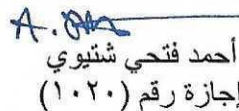 أحمد فتحي شتيوي
إجازة رقم (١٠٢٠)